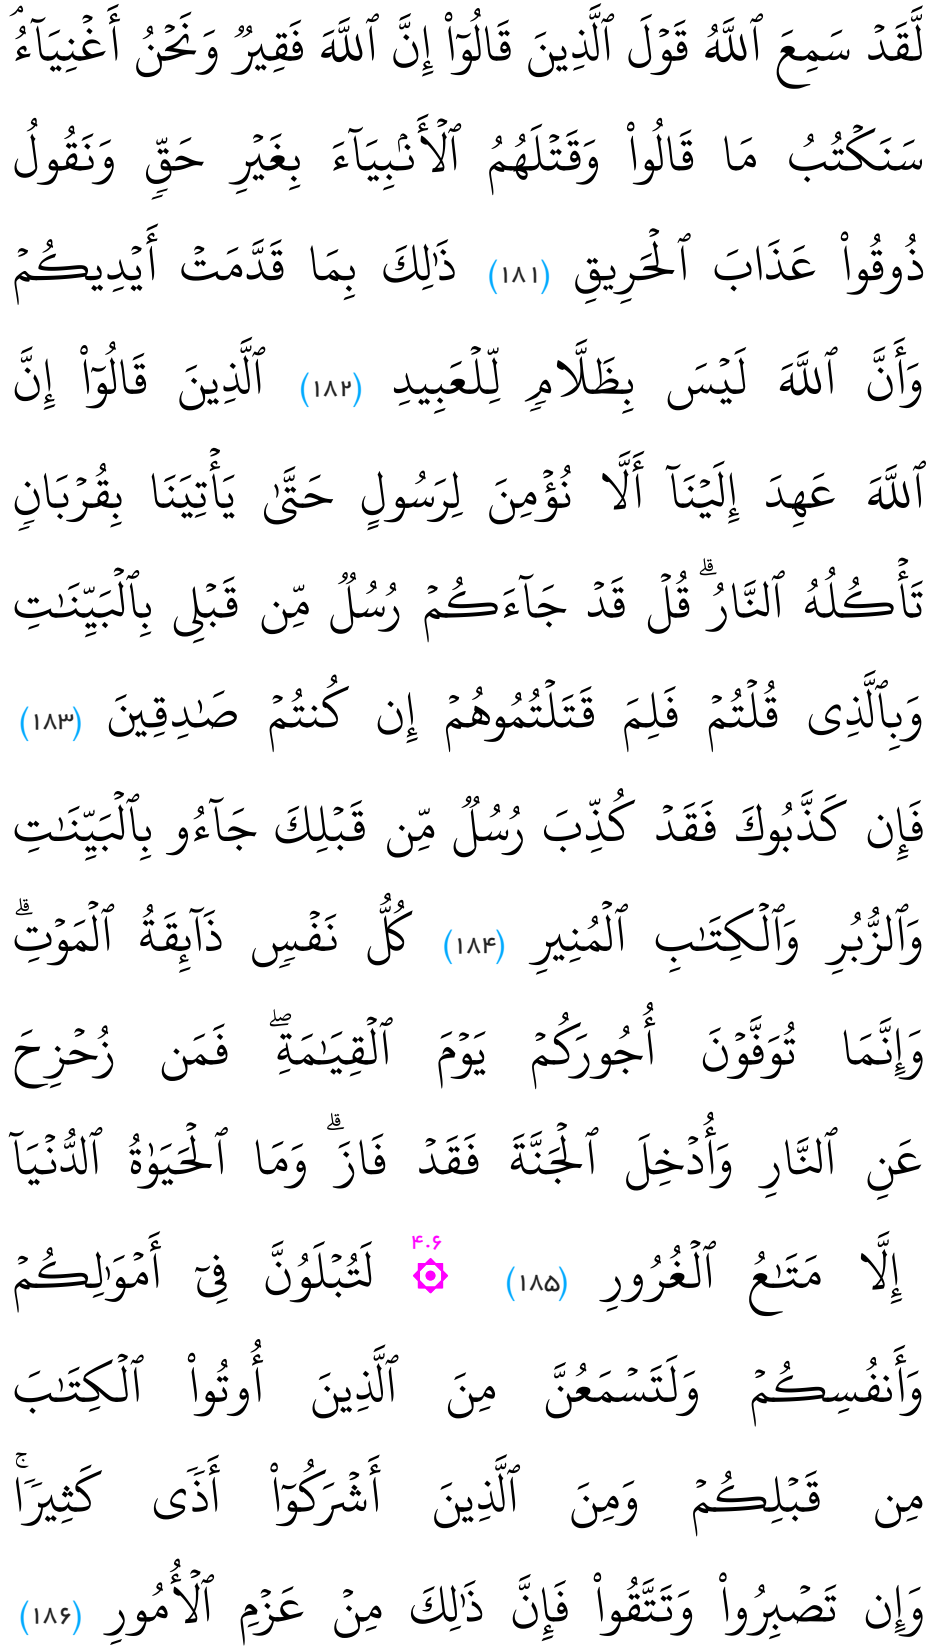 لَّقَدۡ سَمِعَ ٱللَّهُ قَوۡلَ ٱلَّذِينَ قَالُوٓاْ إِنَّ ٱللَّهَ فَقِيرٞ وَنَحۡنُ أَغۡنِيَآءُۘ
سَنَكۡتُبُ مَا قَالُواْ وَقَتۡلَهُمُ ٱلۡأَنۢبِيَآءَ بِغَيۡرِ حَقّٖ وَنَقُولُ
ذُوقُواْ عَذَابَ ٱلۡحَرِيقِ (۱۸۱) ذَٰلِكَ بِمَا قَدَّمَتۡ أَيۡدِيكُمۡ
وَأَنَّ ٱللَّهَ لَيۡسَ بِظَلَّامٖ لِّلۡعَبِيدِ (۱۸۲) ٱلَّذِينَ قَالُوٓاْ إِنَّ
ٱللَّهَ عَهِدَ إِلَيۡنَآ أَلَّا نُؤۡمِنَ لِرَسُولٍ حَتَّىٰ يَأۡتِيَنَا بِقُرۡبَانٖ
تَأۡكُلُهُ ٱلنَّارُۗ قُلۡ قَدۡ جَآءَكُمۡ رُسُلٞ مِّن قَبۡلِي بِٱلۡبَيِّنَٰتِ
وَبِٱلَّذِي قُلۡتُمۡ فَلِمَ قَتَلۡتُمُوهُمۡ إِن كُنتُمۡ صَٰدِقِينَ (۱۸۳)
فَإِن كَذَّبُوكَ فَقَدۡ كُذِّبَ رُسُلٞ مِّن قَبۡلِكَ جَآءُو بِٱلۡبَيِّنَٰتِ
وَٱلزُّبُرِ وَٱلۡكِتَٰبِ ٱلۡمُنِيرِ (۱۸۴) كُلُّ نَفۡسٖ ذَآئِقَةُ ٱلۡمَوۡتِۗ
وَإِنَّمَا تُوَفَّوۡنَ أُجُورَكُمۡ يَوۡمَ ٱلۡقِيَٰمَةِۖ فَمَن زُحۡزِحَ
عَنِ ٱلنَّارِ وَأُدۡخِلَ ٱلۡجَنَّةَ فَقَدۡ فَازَۗ وَمَا ٱلۡحَيَوٰةُ ٱلدُّنۡيَآ
إِلَّا مَتَٰعُ ٱلۡغُرُورِ (۱۸۵) ۞ ۴۰۶ لَتُبۡلَوُنَّ فِيٓ أَمۡوَٰلِكُمۡ
وَأَنفُسِكُمۡ وَلَتَسۡمَعُنَّ مِنَ ٱلَّذِينَ أُوتُواْ ٱلۡكِتَٰبَ
مِن قَبۡلِكُمۡ وَمِنَ ٱلَّذِينَ أَشۡرَكُوٓاْ أَذٗى كَثِيرٗاۚ
وَإِن تَصۡبِرُواْ وَتَتَّقُواْ فَإِنَّ ذَٰلِكَ مِنۡ عَزۡمِ ٱلۡأُمُورِ (۱۸۶)